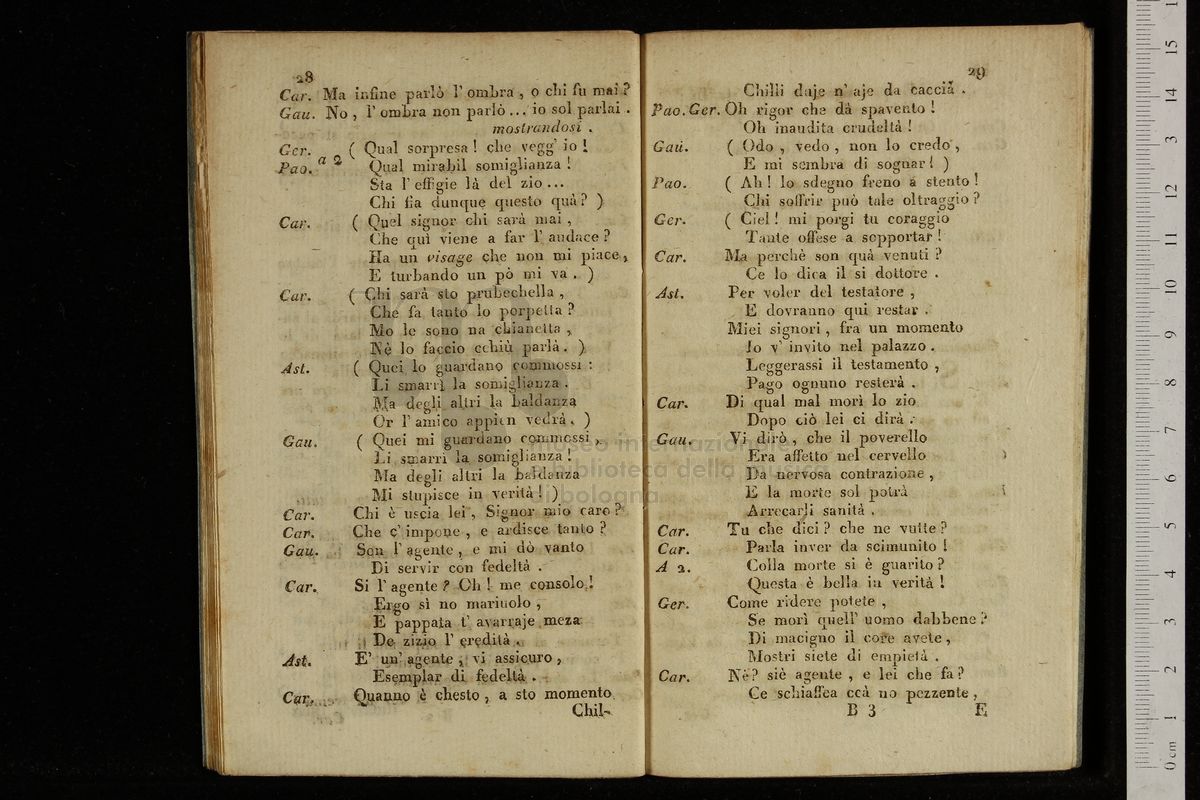 28
Car. Ma infine parlò l' ombra , o chi fu mai ?
Gau. No , l' ombra non parlò ... io sol parlai .
mostrandosi .
Ger. a 2 ( Qual sorpresa ! che vegg' io !
Pao. Qual mirabil somiglianza !
Sta l' effigie là del zio ...
Chi fia dunque questo quà ? )
Car. ( Quel signor chi sarà mai ,
Che quì viene a far l' audace ?
Ha un visage che non mi piace ,
E turbando un pò mi va . )
Car. ( Chi sarà sto prubechella ,
Che fa tanto lo porpetta ?
Mo le sono na chianetta ,
Nè lo faccio cchiù parlà . )
Ast. ( Quei lo guardano commossi :
Li smarrì la somiglianza .
Ma degli altri la baldanza
Or l' amico appien vedrà . )
Gau. ( Quei mi guardano commossi ,
Li smarrì la somiglianza !
Ma degli altri la baldanza
Mi stupisce in verità ! )
Car. Chi è uscia lei , Signor mio caro ?
Car. Che c' impone , e ardisce tanto ?
Gau. Son l' agente , e mi dò vanto
Di servir con fedeltà .
Car. Si l' agente ? Oh ! me consolo !
Ergo sì no mariuolo ,
E pappata t' avarraje meza
De zizio l' eredità .
Ast. E' un' agente , vi assicuro ,
Esemplar di fedeltà .
Car. Quanno è chesto , a sto momento
Chil-
29
Chilli daje n' aje da caccià .
Pao. Ger. Oh rigor che dà spavento !
Oh inaudita crudeltà !
Gau. ( Odo , vedo , non lo credo ,
E mi sembra di sognar ! )
Pao. ( Ah ! lo sdegno freno a stento !
Chi soffrir può tale oltraggio ?
Ger. ( Ciel ! mi porgi tu coraggio
Tante offese a sopportar !
Car. Ma perchè son quà venuti ?
Ce lo dica il si dottore .
Ast. Per voler del testatore ,
E dovranno qui restar .
Miei signori , fra un momento
Io v' invito nel palazzo .
Leggerassi il testamento ,
Pago ognuno resterà .
Car. Di qual mal morì lo zio
Dopo ciò lei ci dirà .
Gau. Vi dirò , che il poverello
Era affetto nel cervello
Da nervosa contrazione ,
E la morte sol potrà
Arrecarli sanità .
Car. Tu che dici ? che ne vutte ?
Car. Parla inver da scimunito !
A 2. Colla morte si è guarito ?
Questa è bella in verità !
Ger. Come ridere potete ,
Se morì quell' uomo dabbene ?
Di macigno il core avete ,
Mostri siete di empietà .
Car. Nè ? siè agente , e lei che fa ?
Ce schiaffea ccà no pezzente ,
B 3 E
museo internazionale
e biblioteca della musica
di bologna
0 cm 1 2 3 4 5 6 7 8 9 10 11 12 13 14 15